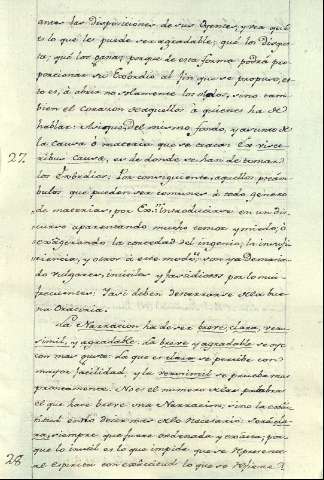 antes las disposiciones de sus Oyentes, y vea qual
es lo que les puede ser agradable; qué los disgus
ta; qué los gana; porque de esta forma podrá pro
porcionar su Exordio al fin que se propuso, es
to es, á abrir no solamente los oídos, sino tam
bien el corazon de aquellos à quienes ha de
hablar: Mas que del mismo fondo, y asunto de
27 la causa ó materia que se trata Ex visce
ribus Causæ, es de donde se han de tomar
los Exordios. Por consiguiente, aquellos preám
bulos que pueden ser comunes à todo genero
de materias, por Ex.: Introducirse en un dis
curso aparentando mucho temor y miedo, ó
exagerando la cortedad del ingenio, la insufi
ciencia, y otros à este modo, son ya demasia
do vulgares, inutiles y fastidiosos por lo mui
frecuentes; y así deben desterrarse de la bue
na Oratoria.
La Narracion ha de ser breve, clara, vero
simil, y agradable. La breve y agradable se oye
con mas gusto: la que es clara se percibe con
mayor facilidad, y la verosimil se prueba mas
prontamente. No es el numero de las palabras
el que hace breve una Narracion; sino la exâc
titud en no decir mas de lo necesario: Será cla
ra, siempre que fuere ordenada y exâcta; por
que lo inutil es lo que impide que se represente
28 al Espiritu con exâctitud lo que se refiere. I